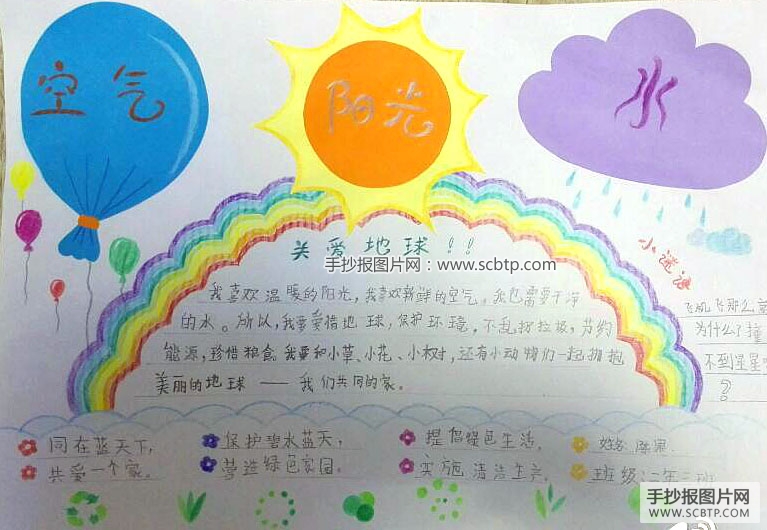 空气
阳光
水
关爱地球!!
手抄报图片网:www.scbtp.com
我喜欢温暖的阳光,我喜欢新鲜的空气。我也需要干净
的水。所以,我要爱惜地球,保护环境,不乱扔垃圾,节约
能源,珍惜粮食。我要和小草、小花、小树,还有小动物们一起拥抱
美丽的地球——我们共同的家。
小谜语
飞机飞那么
为什么了撞
不到星星
?
同在蓝天下,
共爱一个家。
保护碧水蓝天,
营造绿色家园。
提倡绿色生活,
实施清洁生产。
姓名:陈
班级:二年三班
手抄报图片网
WWW.SCBTP.COM